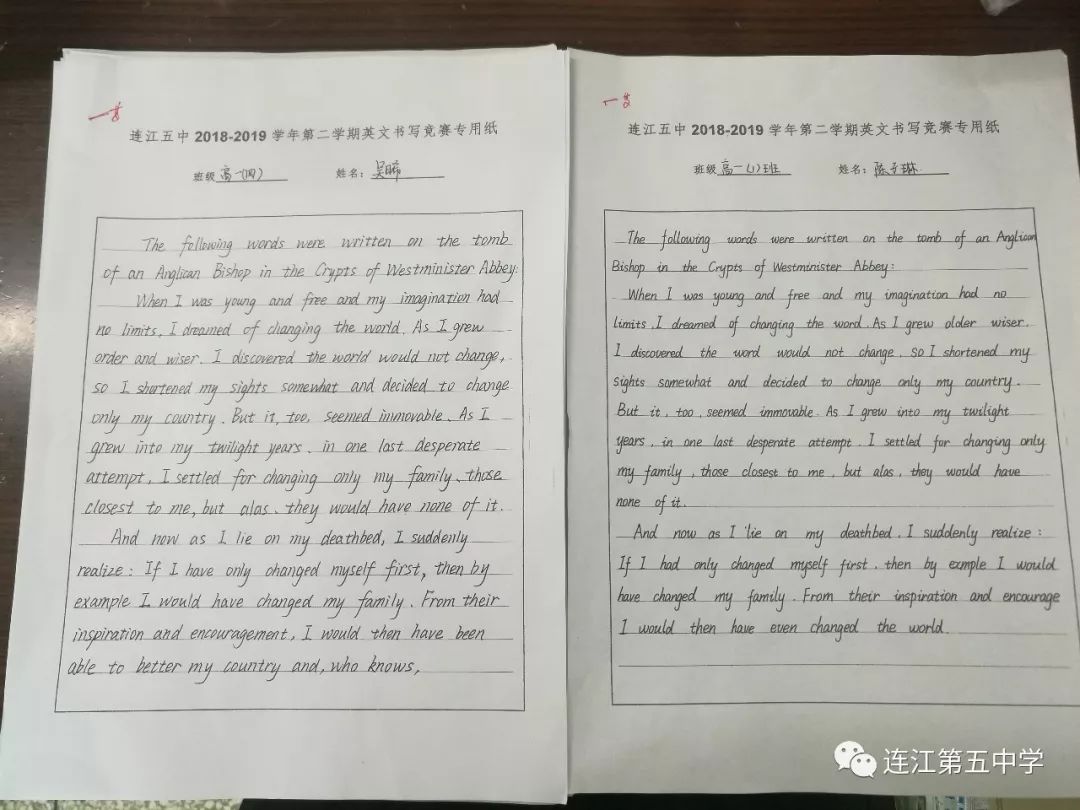 一等
连江五中 2018-2019 学年第二学期英文书写竞赛专用纸
班级 高一(四) 姓名: 吴晞
The following words were written on the tomb
of an Anglican Bishop in the Crypts of Westminister Abbey:
When I was young and free and my imagination had
no limits, I dreamed of changing the world. As I grew
order and wiser. I discovered the world would not change,
so I shortened my sights somewhat and decided to change
only my country. But it, too, seemed immovable. As I
grew into my twilight years, in one last desperate
attempt, I settled for changing only my family, those
closest to me, but alas, they would have none of it.
And now as I lie on my deathbed, I suddenly
realize: If I have only changed myself first, then by
example I would have changed my family. From their
inspiration and encouragement, I would then have been
able to better my country and, who knows,
一等
连江五中 2018-2019 学年第二学期英文书写竞赛专用纸
班级 高一(1)班 姓名: 陈予琳
The following words were written on the tomb of an Anglican
Bishop in the Crypts of Westminister Abbey:
When I was young and free and my imagination had no
limits, I dreamed of changing the word. As I grew older wiser.
I discovered the word would not change, so I shortened my
sights somewhat and decided to change only my country.
But it, too, seemed immovable. As I grew into my twilight
years, in one last desperate attempt, I settled for changing only
my family, those closest to me, but alas, they would have
none of it.
And now as I lie on my deathbed, I suddenly realize:
If I had only changed myself first, then by exmple I would
have changed my family. From their inspiration and encourage
I would then have even changed the world.
连江第五中学